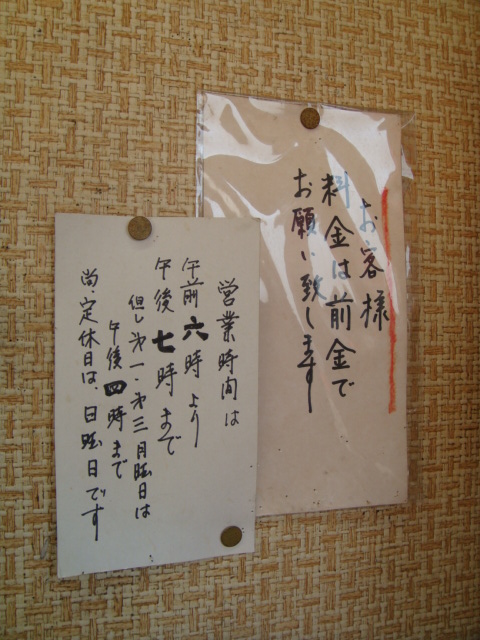 お客様
料金は前金で
お願い致します
営業時間は
午前六時より
午後七時まで
但し第一・第三月曜日は
午後四時まで
尚・定休日は、日曜日です